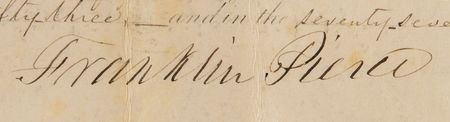 fty three, — and in the seventy-seve
Franklin Pierce